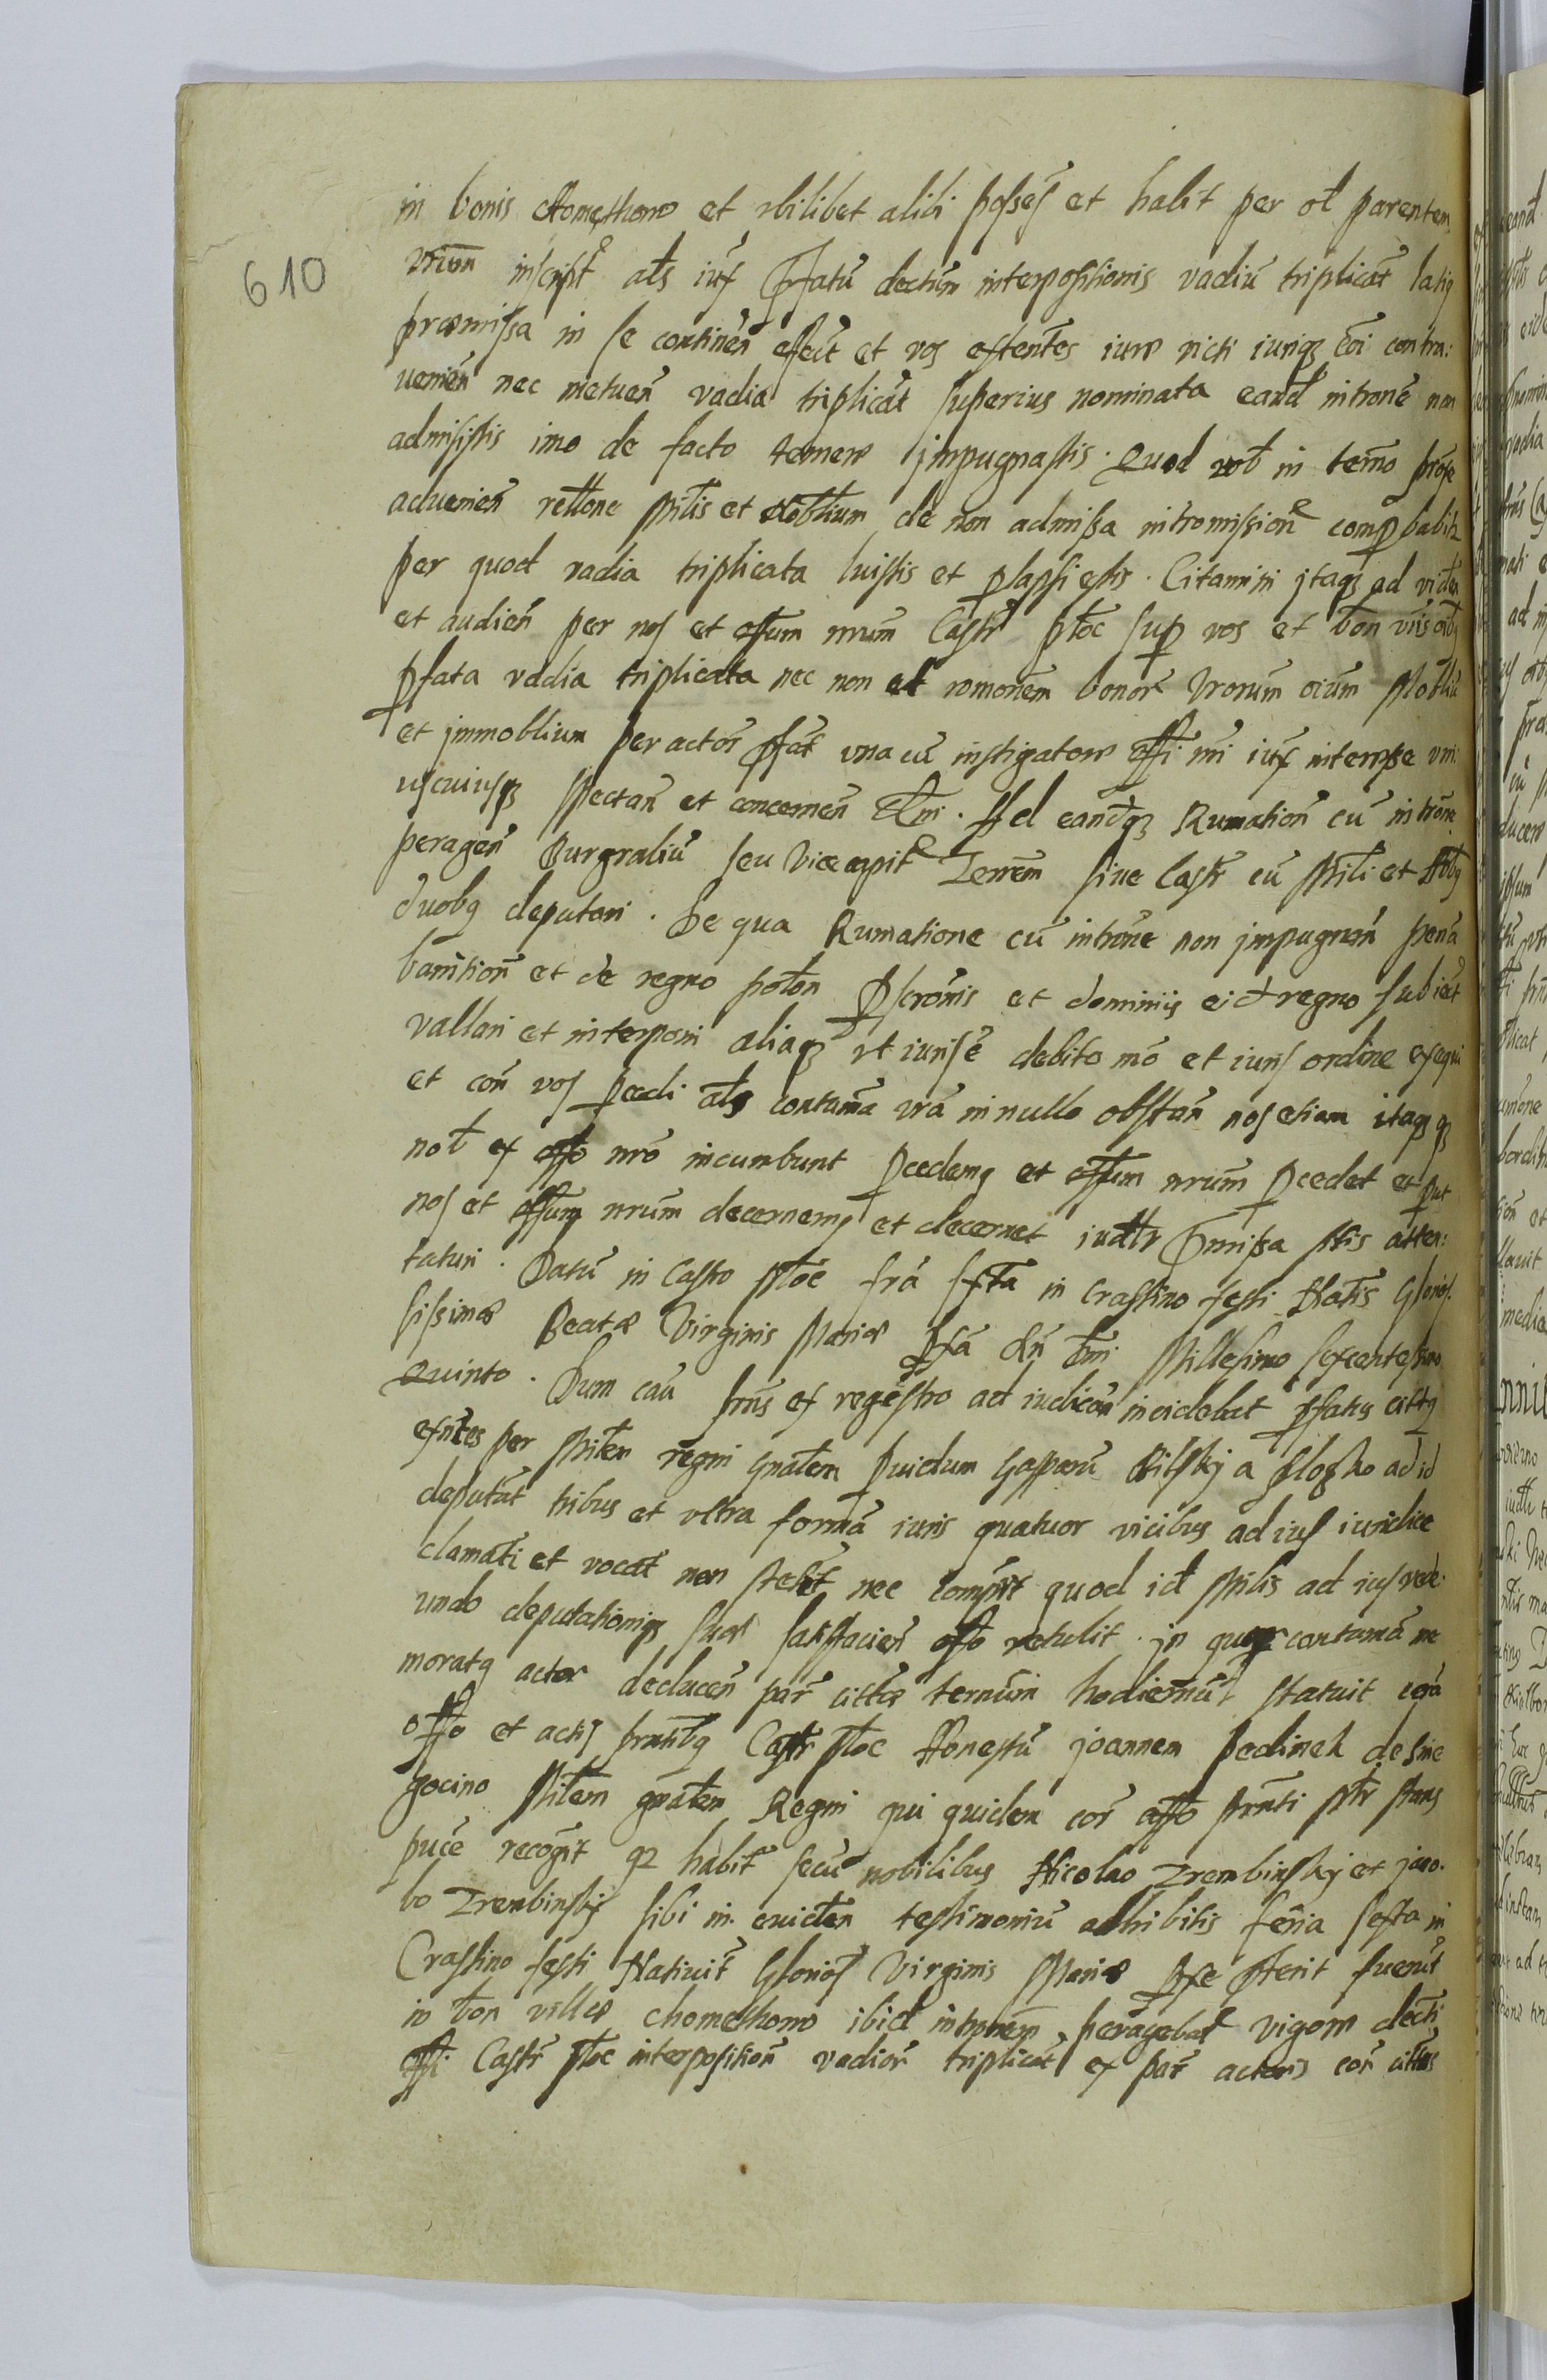 610
in bonis Chomethowo et ubilibet alibi posses et habit per ol parentem
vrum inscript als iux Pfatu dectum interpositionis vadiu triplicat latiq
præmissa in se continen efect et vos existentes iure victi iurisq coi contra:
uenien nec metuen vadia triplicat superius nominata eand introne non
admisistis imo de facto temere impugnastis. Quod vob in termo prose
aduenien rellone Mlis et Nobilium de non admissa intromissione comprobabitr
per quod vadia triplicata luistis et plapsi estis. Citamini itaq ad viden
et audien per nos et offum nrum Castr Ploc sup vos et bon vris oibq
pfata vadia triplicata nec non et romonem bonor vrorum oium Mobiliu
et immobilium per actor pfat vna cu instigatore offi nri iux interesse vni:
uscuiusq spectan et concernen . Ad eandq Rumation cu introne
peragen Burgrabiu seu Vicecapit Terrem siue Castr cu Mili et Nobq
duobq deputari. De qua Rumatione cu introne non impugnan pena
bannition et de regno polon proscronis et dominiis eid regno subiect
vallari et interponi aliaq vt iuris e debito mo et iuris ordine exequi
et con vos pcedi als contuma vra in nullo obstan nos etiam itaq q
nob ex offo nro incumbunt pcedemq et offum nrum pcedet et put
nos et offum nrum decernemq et decernet iudlr Pmissa ptis atten:
taturi. Datu in Castro Ploc fra sexta in Crastino festi Natis Glorios:
sissimæ Beatæ Virginis Mariæ pxa Millesimo sexcentesimo
Quinto. Dum cau pns ex regestro ad iudican incidebat pfatq citatq
exntes per Mlem regni gnalem puidum Gasparu Bilskj a Plozko ad id
deputat tribus et vltra forma iuris quatuor vicibus ad ius iuridice
clamati et vocat non stetit nec compuit quod id Mlis ad ius rede:
undo deputationiq suæ satisfacien offo retulit. in quor contuma me
moratq actor deducen par cittæ termum hodiernu statuit cora
offo et actis pntibq Castr Ploc Honestu joannem Pedinek de Snie
gocino Mlem gnalem Regni qui quidem cor offo pnti ptr stans
puce recogit qz habit secu nobilibus Nicolao Trembinskj et jaco:
bo Trembinskj sibi in euiden testimoniu adhibitis feria sexta in
Crastino festi Natiuit Glorios Virginis Mariæ pxe pterit fuerut
in bon villæ Chomethowo ibid introem peragebat vigore decti
offi Castr Ploc interposition vadior triplicat ex par actoris cor cittis